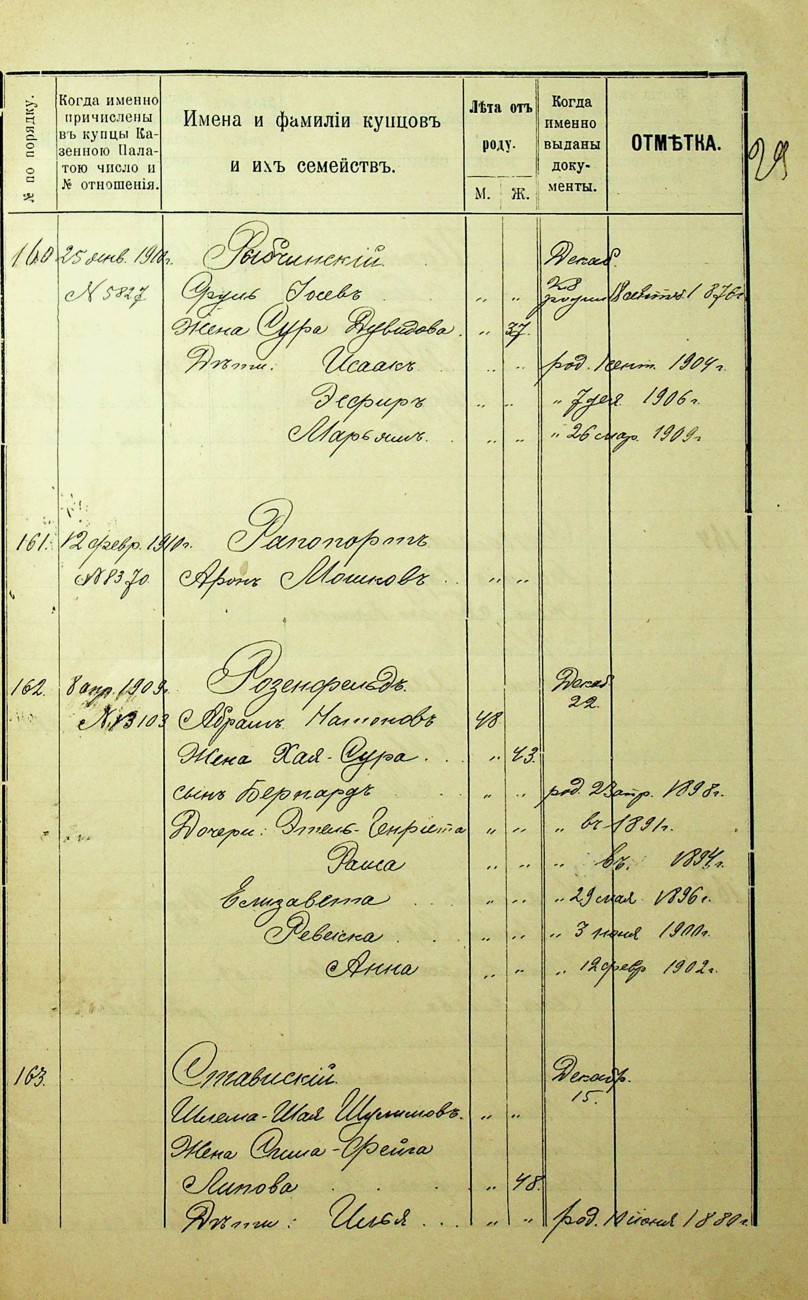 29
№ по порядку.
Когда именно причислены въ купцы Казенною Палатою число и № отношенія.
Имена и фамиліи купцовъ и ихъ семействъ.
Лѣта отъ роду.
М. Ж.
Когда именно выданы документы.
ОТМѢТКА.
160 25 янв. 1910 г. Рыбчинскій Декаб.
N 5827 Сруль Іосевъ „ „ 28 родил. 18 1876 г.
Жена Сура Дувидова. „ 37.
Дѣти: Исаакъ „ „ род. 1 сент. 1904 г.
Эсфирь „ „ „ 7 1906 г.
Марьямъ. „ „ „ 26 мар. 1909 г.
161. 12 февр. 1910 г. Рапопортъ
N 8370 Аронъ Мошковъ „ „
162. 8 апр. 1909 г. Розенфельдъ. Декаб. 22.
N 13103 Абрамъ Натановъ 48
Жена Хая-Сура „ 43.
сынъ Бернардъ „ „ род. 23 апр. 1898 г.
Дочери: Этель-Генріета „ „ „ въ 1891 г.
Раиса „ „ „ въ. 1894 г.
Елизавета „ „ „ 29 мая 1896 г.
Ревекка „ „ „ 3 июня 1900 г.
Анна „ „ „ 12 февр 1902 г.
163. Ставискій Декабр. 15.
Шлема-Шая Шулимовъ. „ „
Жена Сима-Фейга
Липова „ 48.
Дѣти: Илья „ „ род. 10 июня 1880 г.